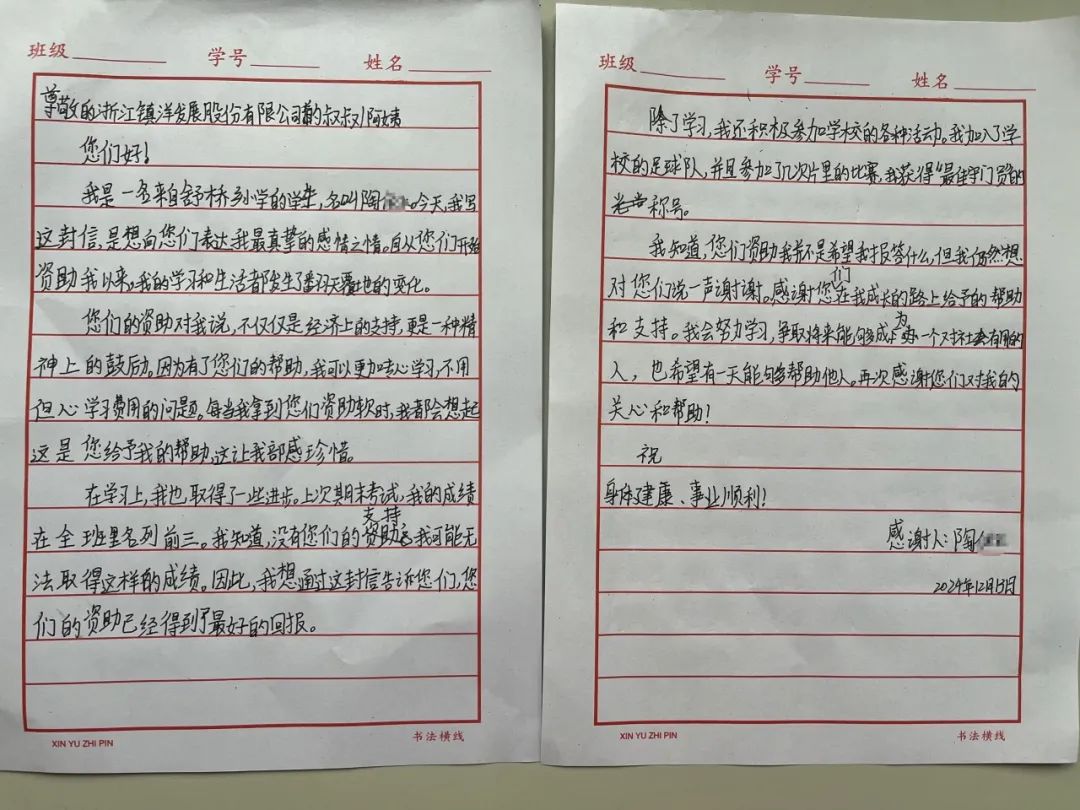 班级 学号 姓名
尊敬的浙江镇洋发展股份有限公司的叔叔阿姨
您们好!
我是一名来自舒桥乡小学的学生,名叫陶 。今天,我写
这封信,是想向您们表达我最真挚的感情之情。自从您们开始
资助我以来,我的学习和生活者发生了番羽天覆地的变化。
您们的资助对我说,不仅仅是经济上的支持,更是一种精
神上的鼓励。因为有了您们的帮助,我可以更加专心学习,不用
但心学习费用的问题。每当我拿到您们资助款时,我都会想起
这是您给予我的帮助,这让我部感珍惜。
在学习上,我也取得了一些进步。上次期末考试,我的成绩
在全班里名列前三。我知道,没有您们的支持我可能无
法取得这样的成绩。因此,我想通过这封信告诉您们,您
们的资助已经得到了最好的回报。
XIN YU ZHI PIN 书法横线
班级 学号 姓名
除了学习,我还积极参加学校的各种活动。我加入了学
校的足球队,并且参加了几次片里的比赛,我获得“最佳守门员”的
称号。
我知道,您们资助我并不是希望我报答什么,但我仍然想
对您们说一声谢谢。感谢您们在我成长的路上给予的帮助
和支持。我会努力学习,争取将来能够成为一个对社会有用的
人,也希望有一天能够帮助他人。再次感谢您们对我的
关心和帮助!
祝
身体建康、事业顺利!
感谢人:陶
2024年12月13日
XIN YU ZHI PIN 书法横线